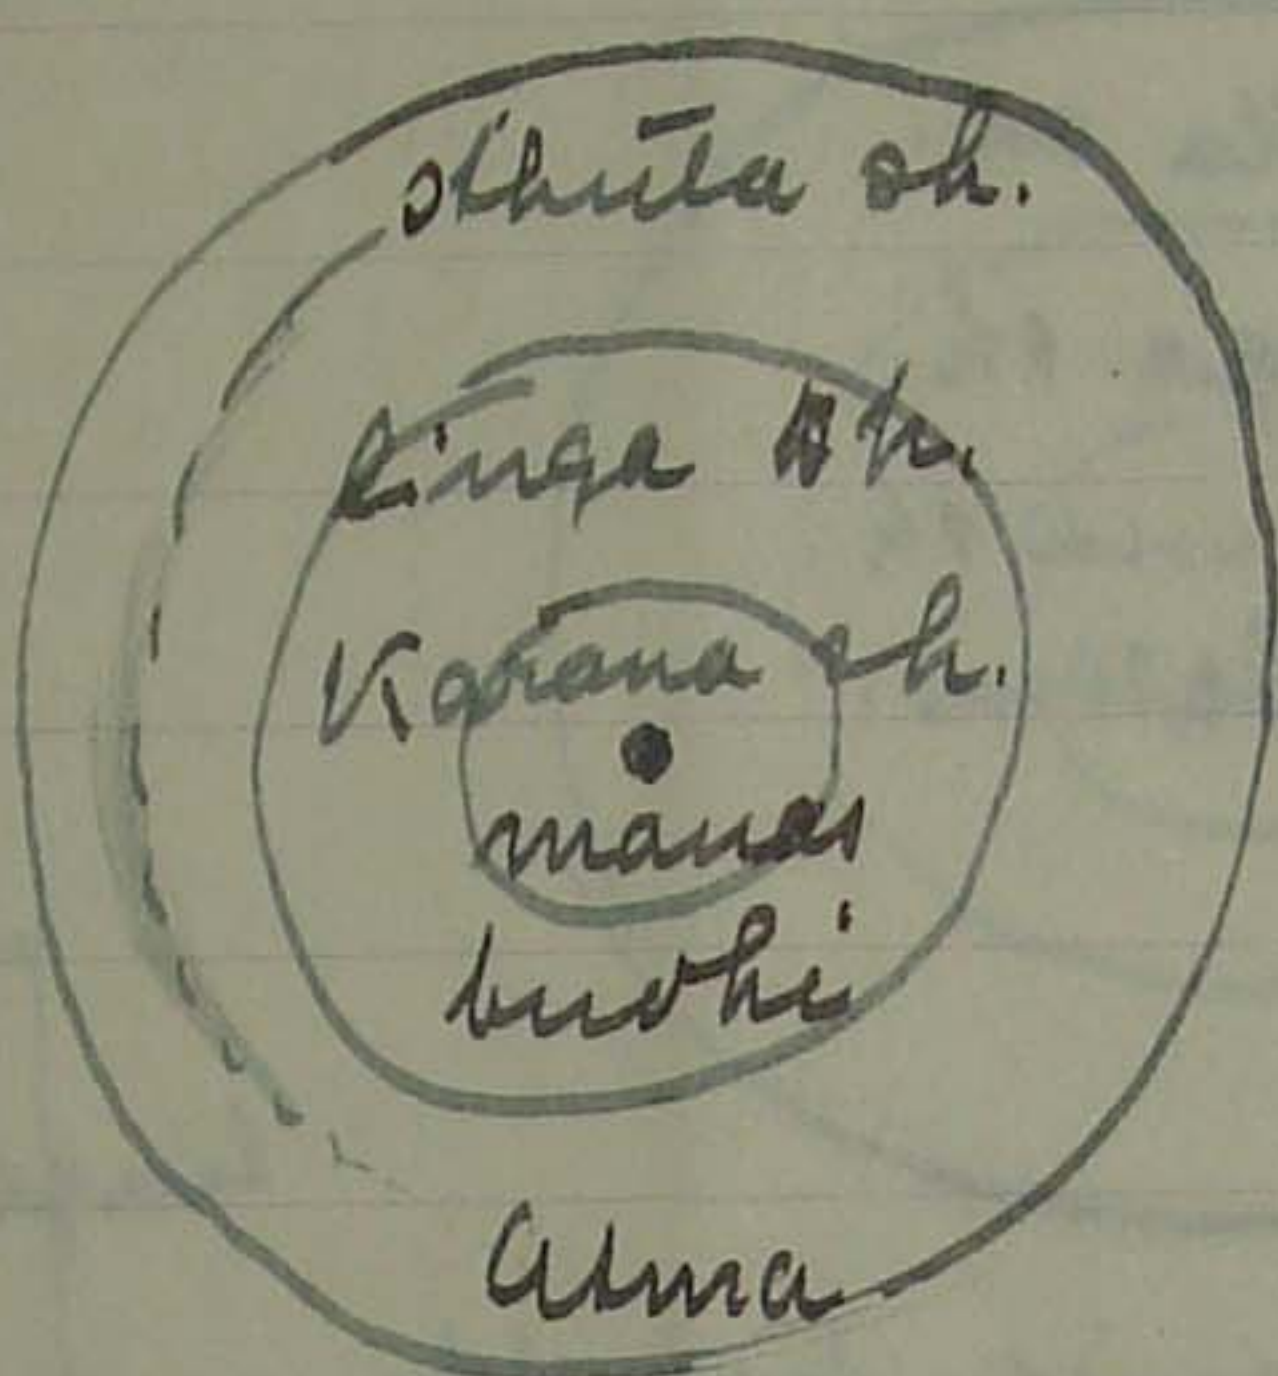 sthūla sh.
Linga sh.
Karana sh.
manas
budhi
Atma